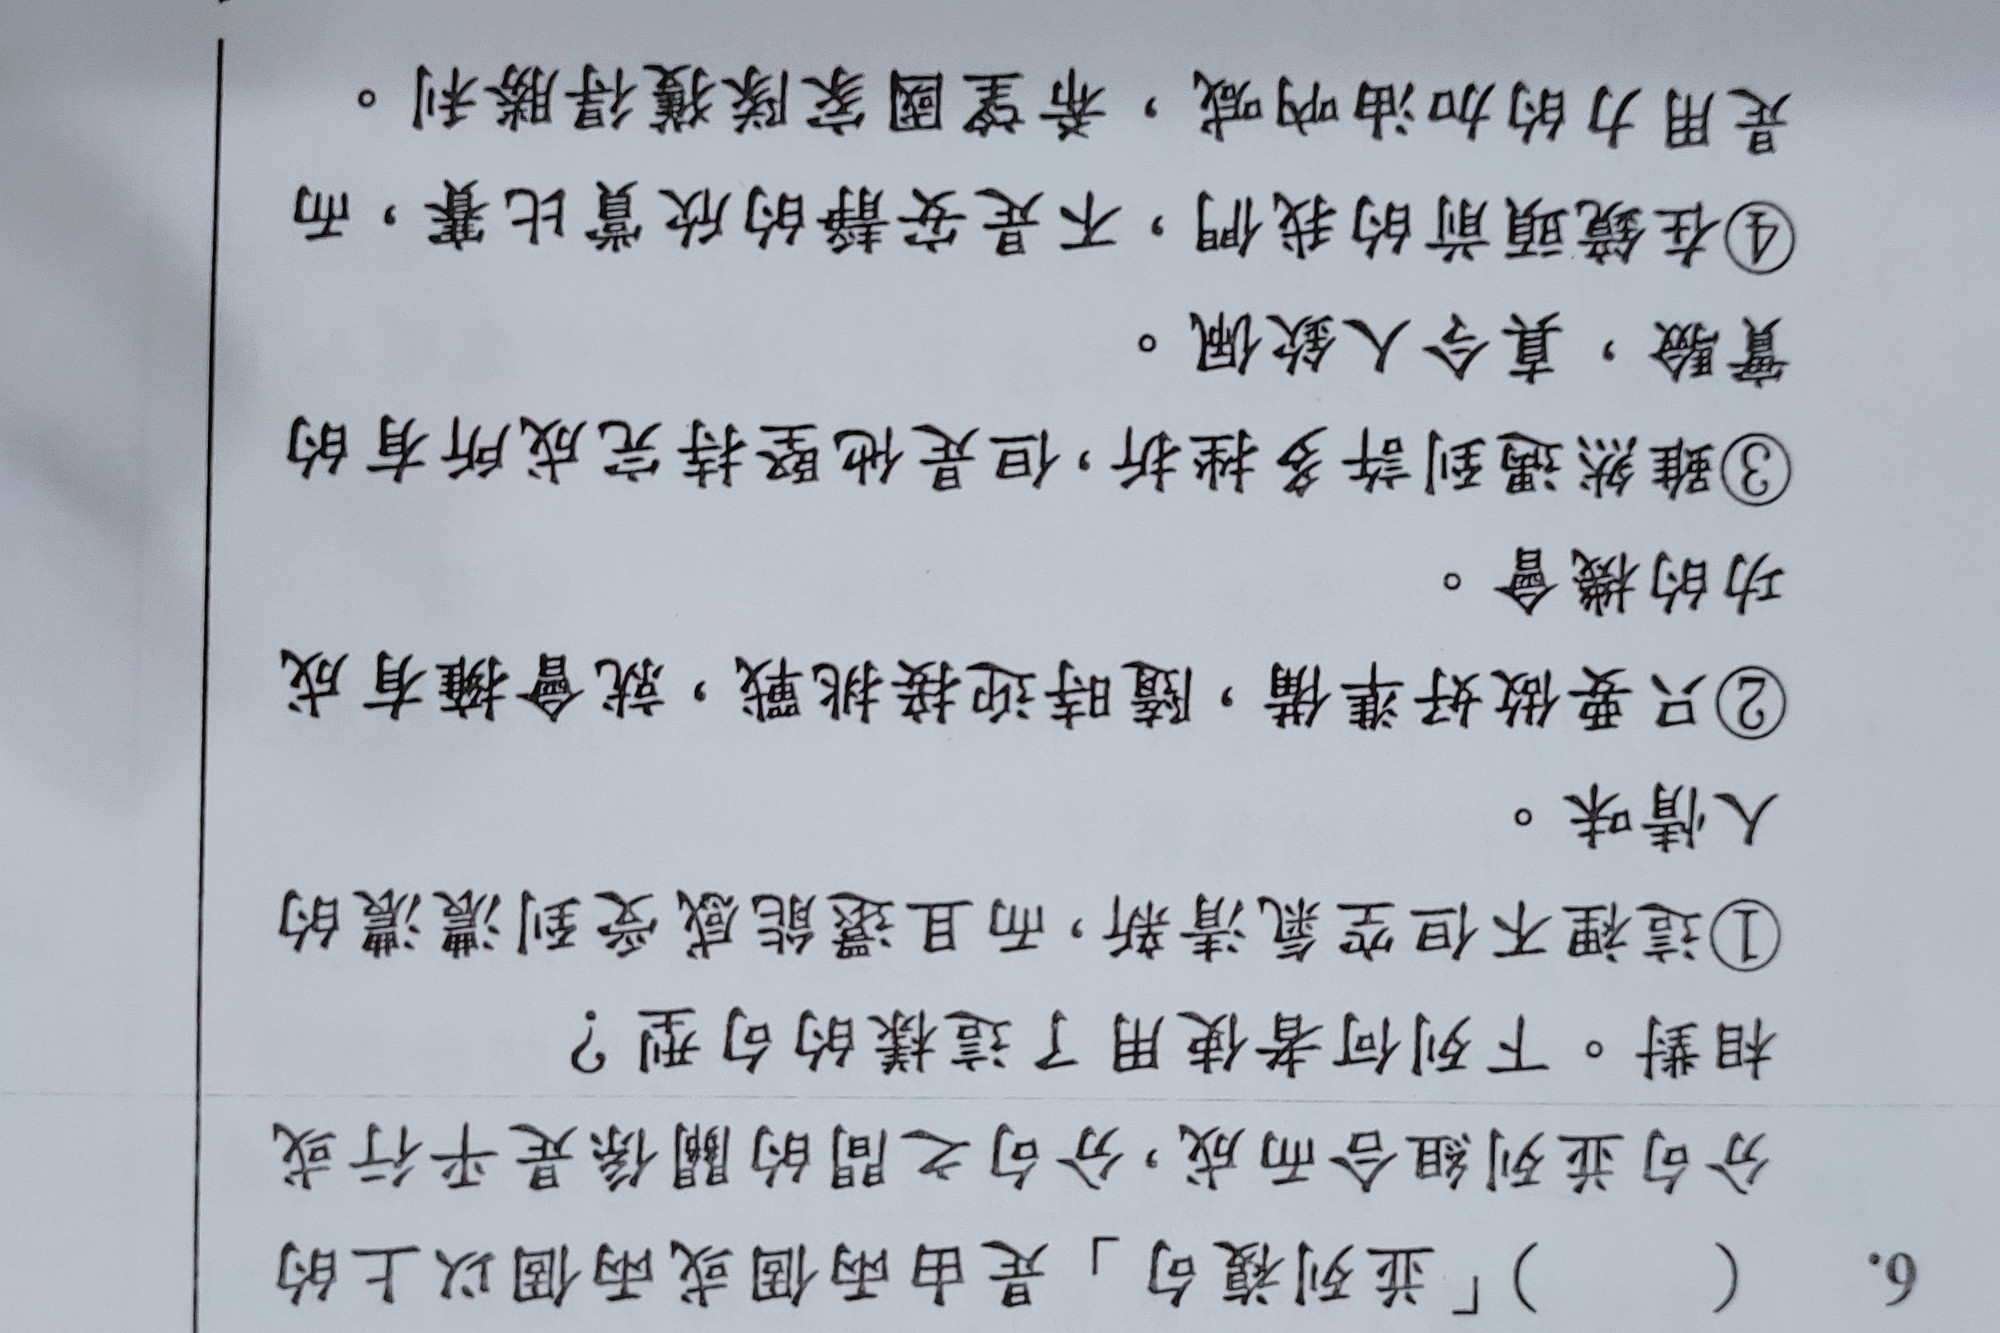 6. (　　)「並列複句」是由兩個或兩個以上的
分句並列組合而成，分句之間的關係是平行或
相對。下列何者使用了這樣的句型？
①這裡不但空氣清新，而且還能感受到濃濃的
人情味。
②只要做好準備，隨時迎接挑戰，就會擁有成
功的機會。
③雖然遇到許多挫折，但是他堅持完成所有的
實驗，真令人欽佩。
④在鏡頭前的我們，不是安靜的欣賞比賽，而
是用力的加油吶喊，希望國家隊獲得勝利。